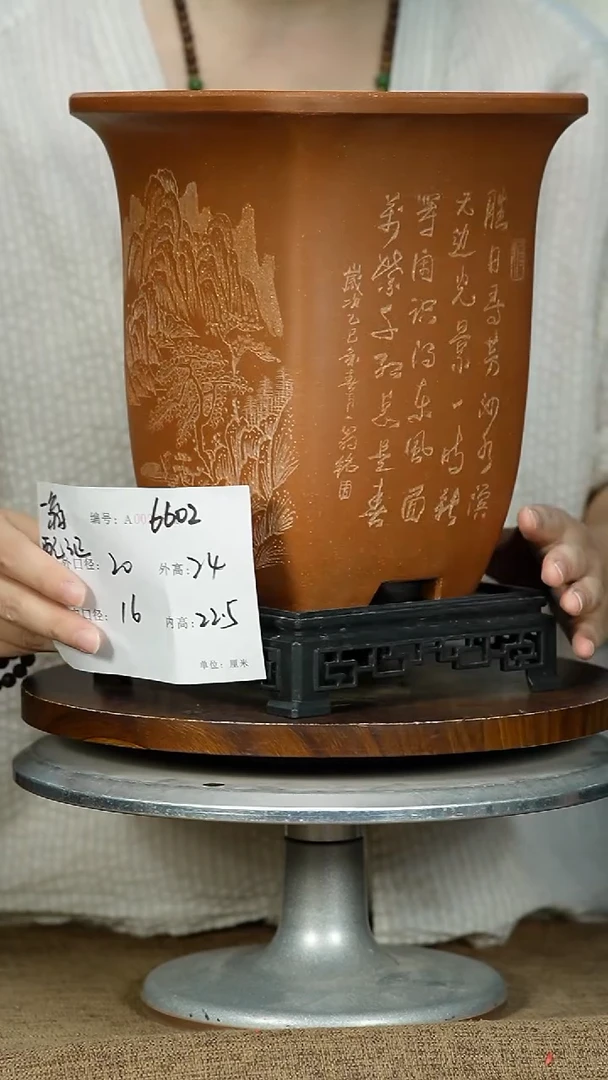 勝日寻芳泗水滨
无边光景一时新
等闲识得东風面
萬紫千红总是春
歲次乙巳年春月
编号：A 6602
外口径：20 外高：24
口径：16 内高：22.5
单位：厘米